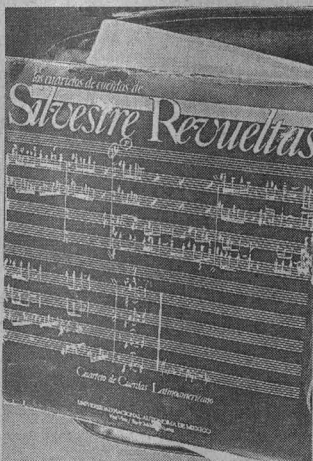 los cuartetos de cuerdas de
Silvestre Revueltas
Cuarteto de Cuerdas Latinoamericano
UNIVERSIDAD NACIONAL AUTONOMA DE MEXICO